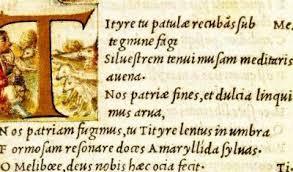 T Ityre tu patulæ recubãs sub Me.
tegmine fagi
Siluestrem tenui musam meditaris
auena.
Nos patriæ fines, et dulcia linqui
mus arua,
N os patriam fugimus, tu Tityre lentus in umbra
F ormosam resonare doces Amaryllida syluas.
O Melibœe, deus nobis hæc ocia fecit. Ti.